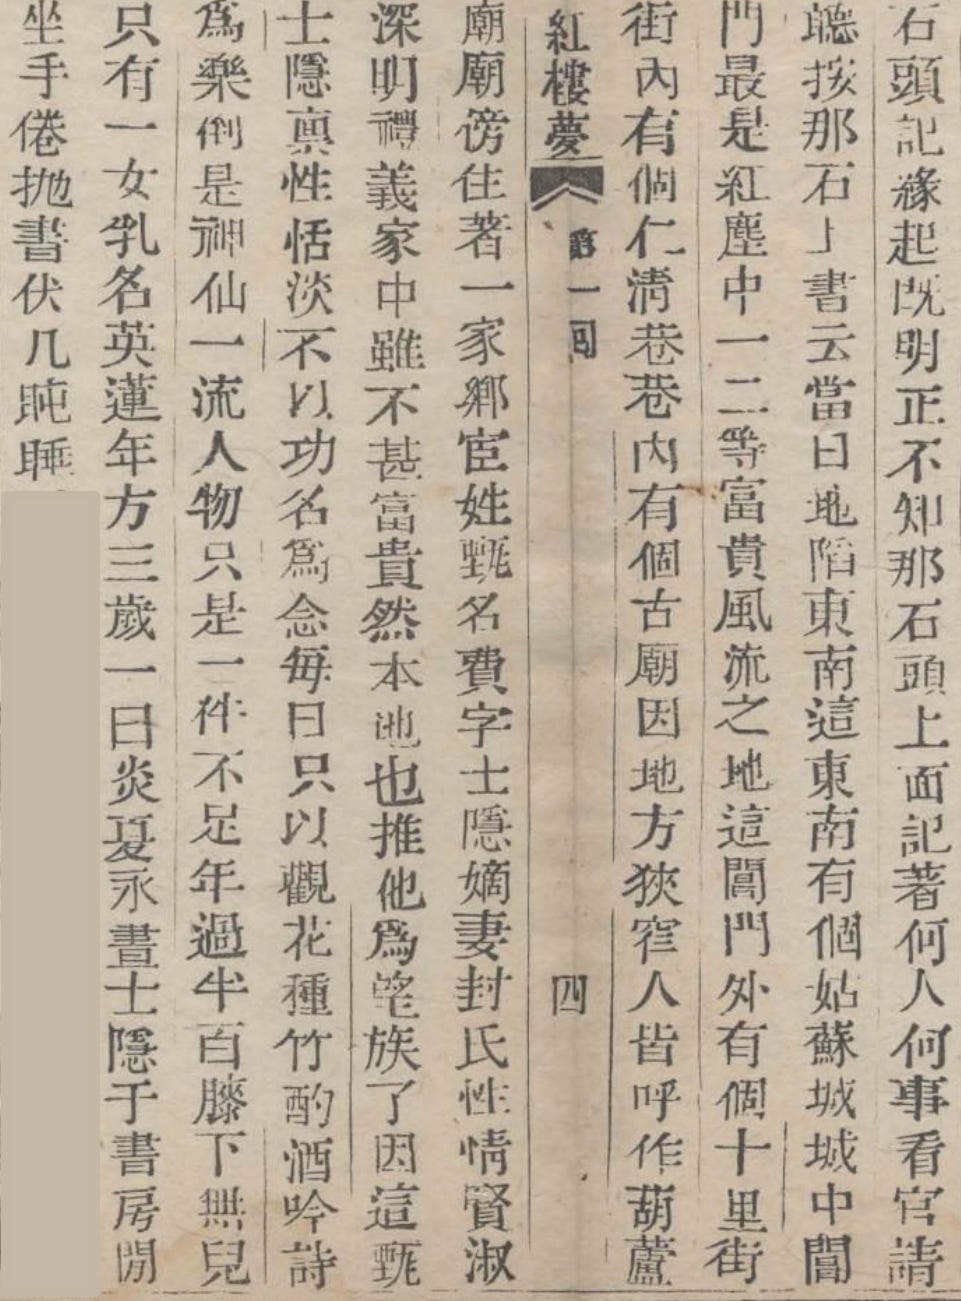 石頭記緣起既明正不知那石頭上面記著何人何事看官請
聽按那石上書云當日地陷東南這東南有個姑蘇城城中閶
門最是紅塵中一二等富貴風流之地這閶門外有個十里街
街內有個仁清巷巷內有個古廟因地方狹窄人皆呼作葫蘆
紅樓夢 第一回 四
廟廟傍住著一家鄉宦姓甄名費字士隱嫡妻封氏性情賢淑
深明禮義家中雖不甚富貴然本地也推他爲望族了因這甄
士隱禀性恬淡不以功名爲念每日只以觀花種竹酌酒吟詩
爲樂倒是神仙一流人物只是一件不足年過半百膝下無兒
只有一女乳名英蓮年方三歲一日炎夏永晝士隱于書房閒
坐手倦拋書伏几盹睡